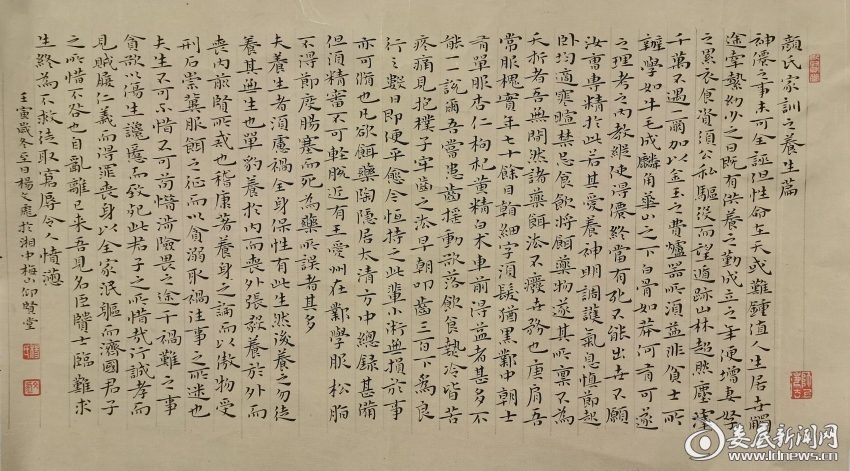 顏氏家訓之養生篇
神僊之事未可全誣但性命在天或難鍾值人生居世觸
途牽縶幼少之日既有供養之勤成立之年便增妻孥
之累衣食資須公私驅役而望遁跡山林超然塵滓
千萬不遇一爾加以金玉之費爐器所須益非貧士所
辦學如牛毛成麟角華山之下白骨如莽何有可遂
之理考之內教縱使得僊終當有死不能出世不願
汝曹專精於此若其愛養神明調護氣息慎節起
臥均適寒暄禁忌食飲將餌藥物遂其所稟不為
夭折者吾無間然諸藥餌法不廢世務也庾肩吾
常服槐實年七十餘目看細字須髮猶黑鄴中朝士
有單服杏仁枸杞黃精白术車前得益者甚多不
能一一說爾吾嘗患齒搖動欲落飲食熱冷皆苦
疼痛見抱樸子牢齒之法早朝叩齒三百下為良
行之數日即便平愈今恒持之此輩小術無損於事
亦可脩也凡欲餌藥陶隱居太清方中總録甚備
但須精審不可輕脫近有王愛州在鄴學服松脂
不得節度腸塞而死為藥所誤者甚多
夫養生者須慮禍全身保性有此生然後養之勿徒
養其無生也單豹養於內而喪外張毅養於外而
喪內前賢所戒也嵇康著養身之論而以傲物受
刑石崇冀服餌之征而以貪溺取禍往事之所迷也
夫生不可不惜不可苟惜涉險畏之途干禍難之事
貪欲以傷生讒慝而致死此君子之所惜哉行誠孝而
見賊履仁義而得罪喪身以全家泯軀而濟國君子
之所惜不咎也自亂離已來吾見名臣賢士臨難求
生終為不救徒取窘辱令人憤懣
壬寅歲冬至日楊文彪於湘中梅山仰賢堂
娄底新闻网
www.ldnews.cn